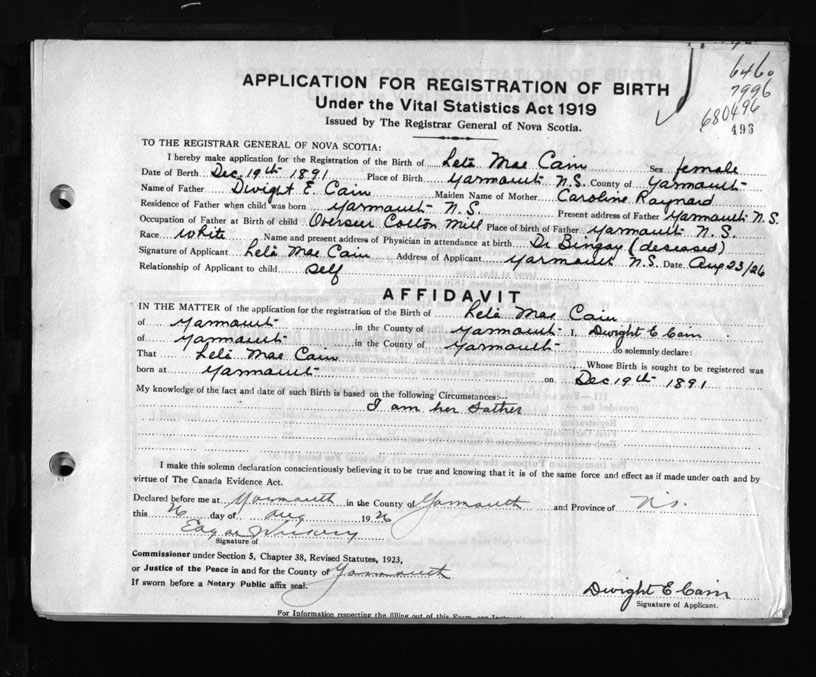 6460
7996
680496
493
APPLICATION FOR REGISTRATION OF BIRTH
Under the Vital Statistics Act 1919
Issued by The Registrar General of Nova Scotia.
TO THE REGISTRAR GENERAL OF NOVA SCOTIA:
I hereby make application for the Registration of the Birth of Lela Mae Cain Sex female
Date of Birth Dec. 19th 1891 Place of Birth Yarmouth N.S. County of Yarmouth
Name of Father Dwight E. Cain Maiden Name of Mother Caroline Raynard
Residence of Father when child was born Yarmouth N.S. Present address of Father Yarmouth N.S.
Occupation of Father at Birth of child Overseer Cotton Mill Place of birth of Father Yarmouth N.S.
Race White Name and present address of Physician in attendance at birth Dr Bingay (deceased)
Signature of Applicant Lela Mae Cain Address of Applicant Yarmouth N.S. Date Aug 23/26
Relationship of Applicant to child self
AFFIDAVIT
IN THE MATTER of the application for the registration of the Birth of Lela Mae Cain
of Yarmouth in the County of Yarmouth I, Dwight E Cain
of Yarmouth in the County of Yarmouth do solemnly declare:
That Lela Mae Cain Whose Birth is sought to be registered was
born at Yarmouth on Dec 19th 1891
My knowledge of the fact and date of such Birth is based on the following Circumstances:—
I am her Father
I make this solemn declaration conscientiously believing it to be true and knowing that it is of the same force and effect as if made under oath and by
virtue of The Canada Evidence Act.
Declared before me at Yarmouth in the County of Yarmouth and Province of N.S.
this 26 day of Aug 1926
Edgar
Signature of
Commissioner under Section 5, Chapter 38, Revised Statutes, 1923,
or Justice of the Peace in and for the County of Yarmouth
If sworn before a Notary Public affix seal.
Dwight E Cain
Signature of Applicant.
For Information respecting the filling out of this Form, see